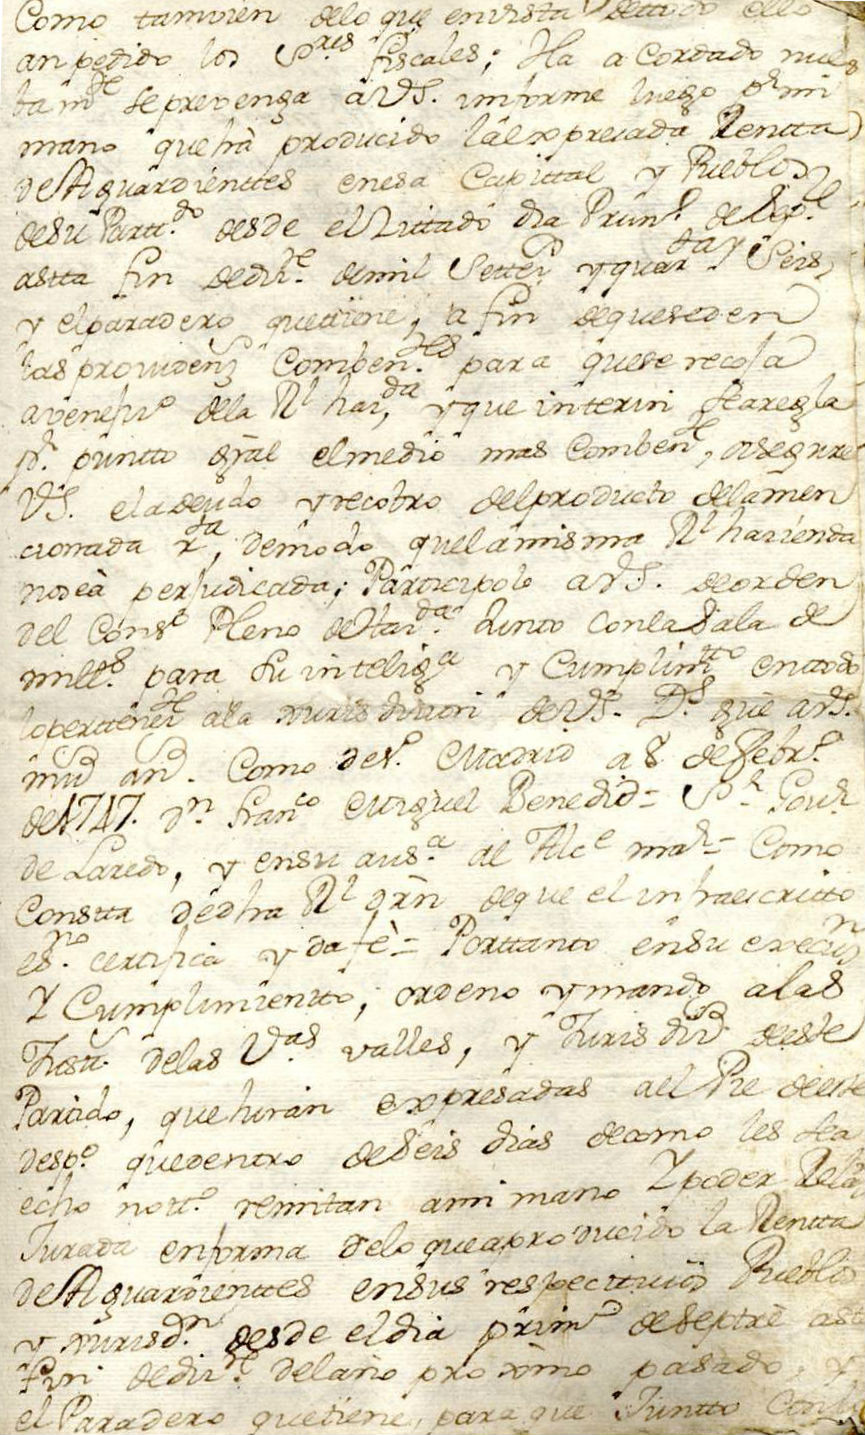 Como tambien delo que en vista de todo ello
an pedido los S.res fiscales; Ha acordado nues
tam.te se prevenga a VS. informe luego p.r mi
mano que hà producido la expresada Rentta
de Aguardienttes en esa Capittal y Pueblos
de su Partt.do desde el zittado dia Prim.o de Sep.e
astta fin de diz.e de mil Settez.s y quar.ta y Seis,
y el paradero que tiene, a fin de que se den
las providenz.s Comben.tes para que se recoja
a venefiz.o de la R.l haz.da, y que interin se aregla
p.r puntto gral el medio mas Comben.te, asegure
VS. el adeudo y recobro del producto de la men
cionada r.ta, de modo que la misma R.l hazienda
no seà perjudicada; Participolo a VS. de orden
del Cons.o Pleno de Haz.da Junto con la Sala de
mill.s para su inteliga y Cumplim.tto en todo
lo perttenez.te a la Jurisdizion de VS. D.s gue a VS.
m.s an.s. Como des.o Madrid a 8 de Febr.o
de 1747. Dn Fran.co Miguel Benedid= S.r Gov.r
de Laredo, y en su aus.a al Alc.e ma.r= Como
Constta de dha R.l orn de que el infraescritto
es.no certifica y da fè= Porttanto en su execuz.n
Y Cumplimientto, ordeno y mando a las
Justt.s de las V.as valles, y Jurisdiz.s deeste
Partido, que hiràn expresadas al Pie de este
desp.o que dentro de Seis dias de como les sea
echo nott.o remitan a mi mano Y poder Relaz.
Jurada en forma de lo que a producido la Rentta
de Aguardienttes en sus respecttivos Pueblos
y Jurisd.n desde el dia prim.o de septre ast
fin de diz.e del año proximo pasado, y
el Paradero que tiene, para que Juntto Con